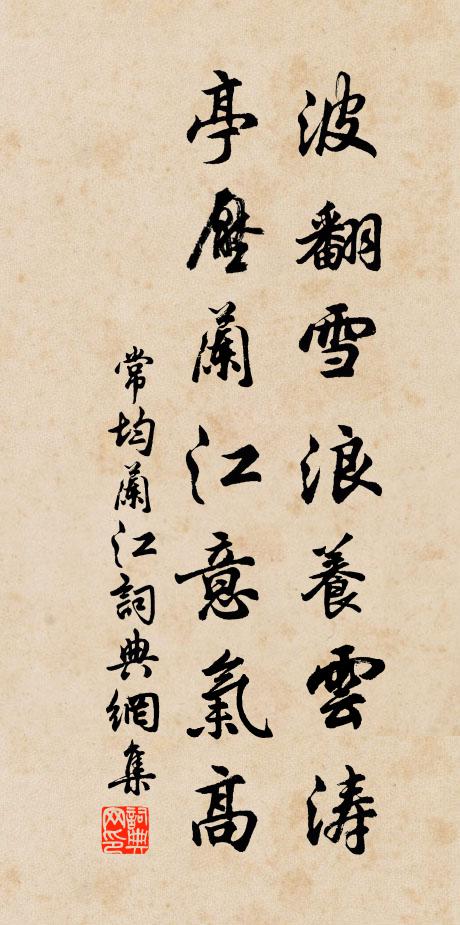 波翻雪浪養雲濤
亭壓蘭江意氣高
常均蘭江詞典網集
詞典网印